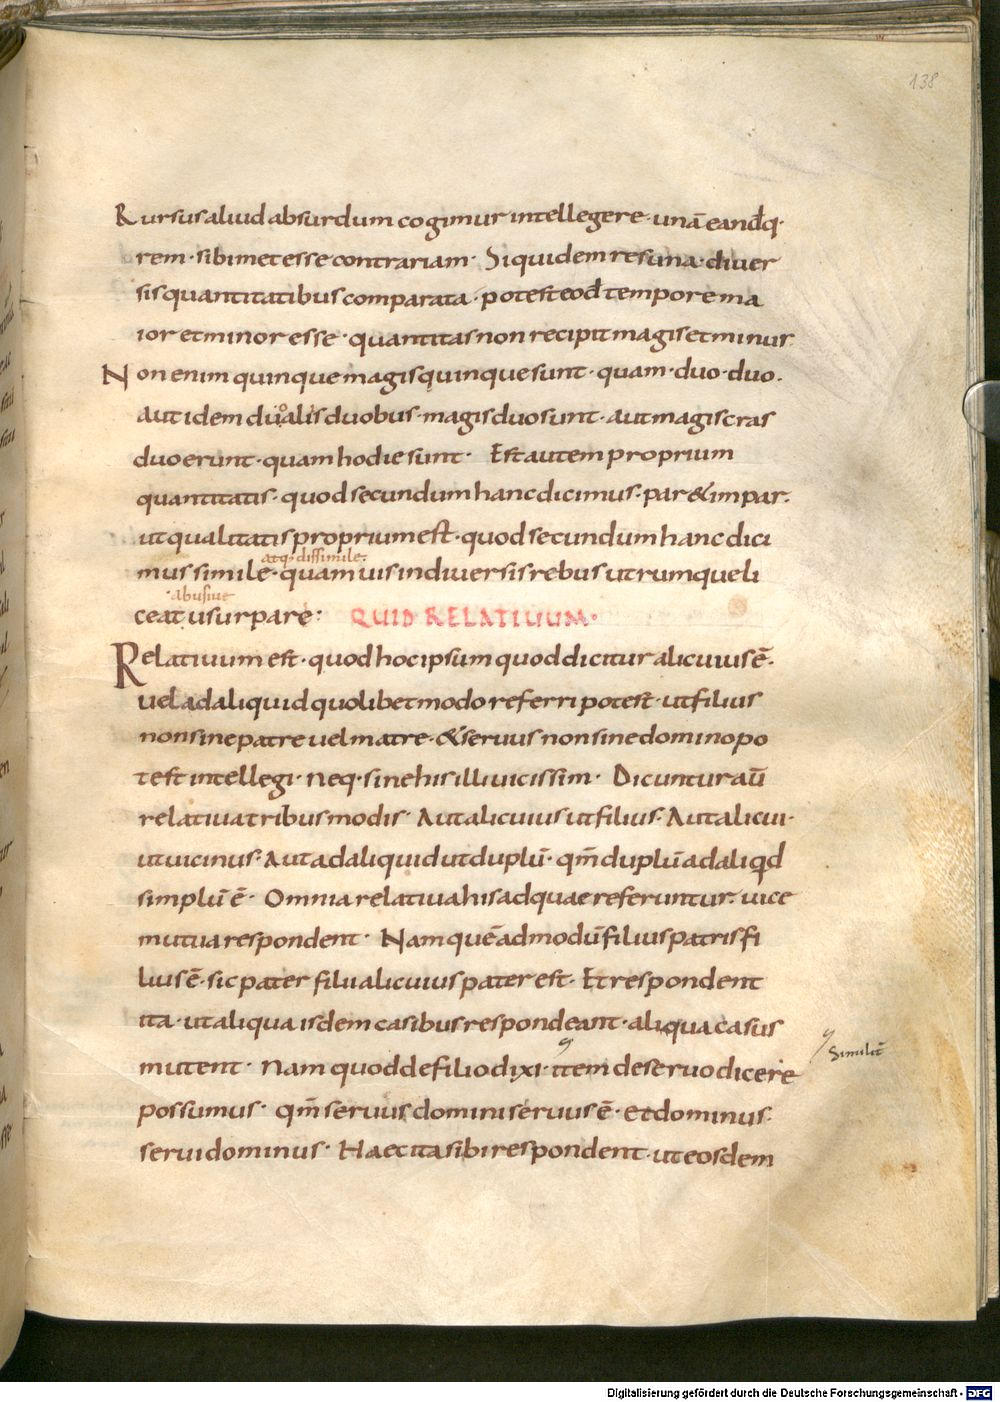 138
Rursus aliud absurdum cogimur intellegere · unā eandēq·
rem · sibimet esse contrariam · Siquidem res una · diver
sis quantitatibus comparata · potest eod tempore ma
ior et minor esse · quantitas non recipit magis et minus
Non enim quinque magis quinque sunt · quam · duo · duo ·
aut idem dualis duobus · magis duo sunt · aut magis cras
duo erunt · quam hodie sunt · Est autem proprium
quantitatis · quod secundum hanc dicimus · par & impar ·
ut qualitatis proprium est · quod secundum hanc dici
atq; dissimile:
mus simile · quam uis in diuersis rebus utrumque li
· abusiue
ceat usurpare : QUID RELATIUUM ·
Relatiuum est · quod hoc ipsum quod dicitur alicuius ē ·
uel ad aliquid quolibet modo referri potest · ut filius
non sine patre uel matre · & seruus non sine domino po
test intellegi · neq · sine his illi uicissim · Dicuntur aū
relatiua tribus modis · Aut alicuius ut filius · Aut alicui ·
ut uicinus · Aut ad aliquid ut duplū · qm̄ duplū ad aliqd
simplū ē · Omnia relatiua his ad quae referuntur · uice
mutua respondent · Nam quēadmodū filius patris fi
lius ē · sic pater filii alicuius pater est · Et respondent
ita · ut aliqua isdem casibus respondeant · aliqua casus
mutent · nam quod de filio dixi · item de seruo dicere
Similit̄
possumus · qm̄ seruus domini seruus ē · et dominus ·
serui dominus · Haec ita sibi respondent · ut eosdem
Digitalisierung gefördert durch die Deutsche Forschungsgemeinschaft - DFG